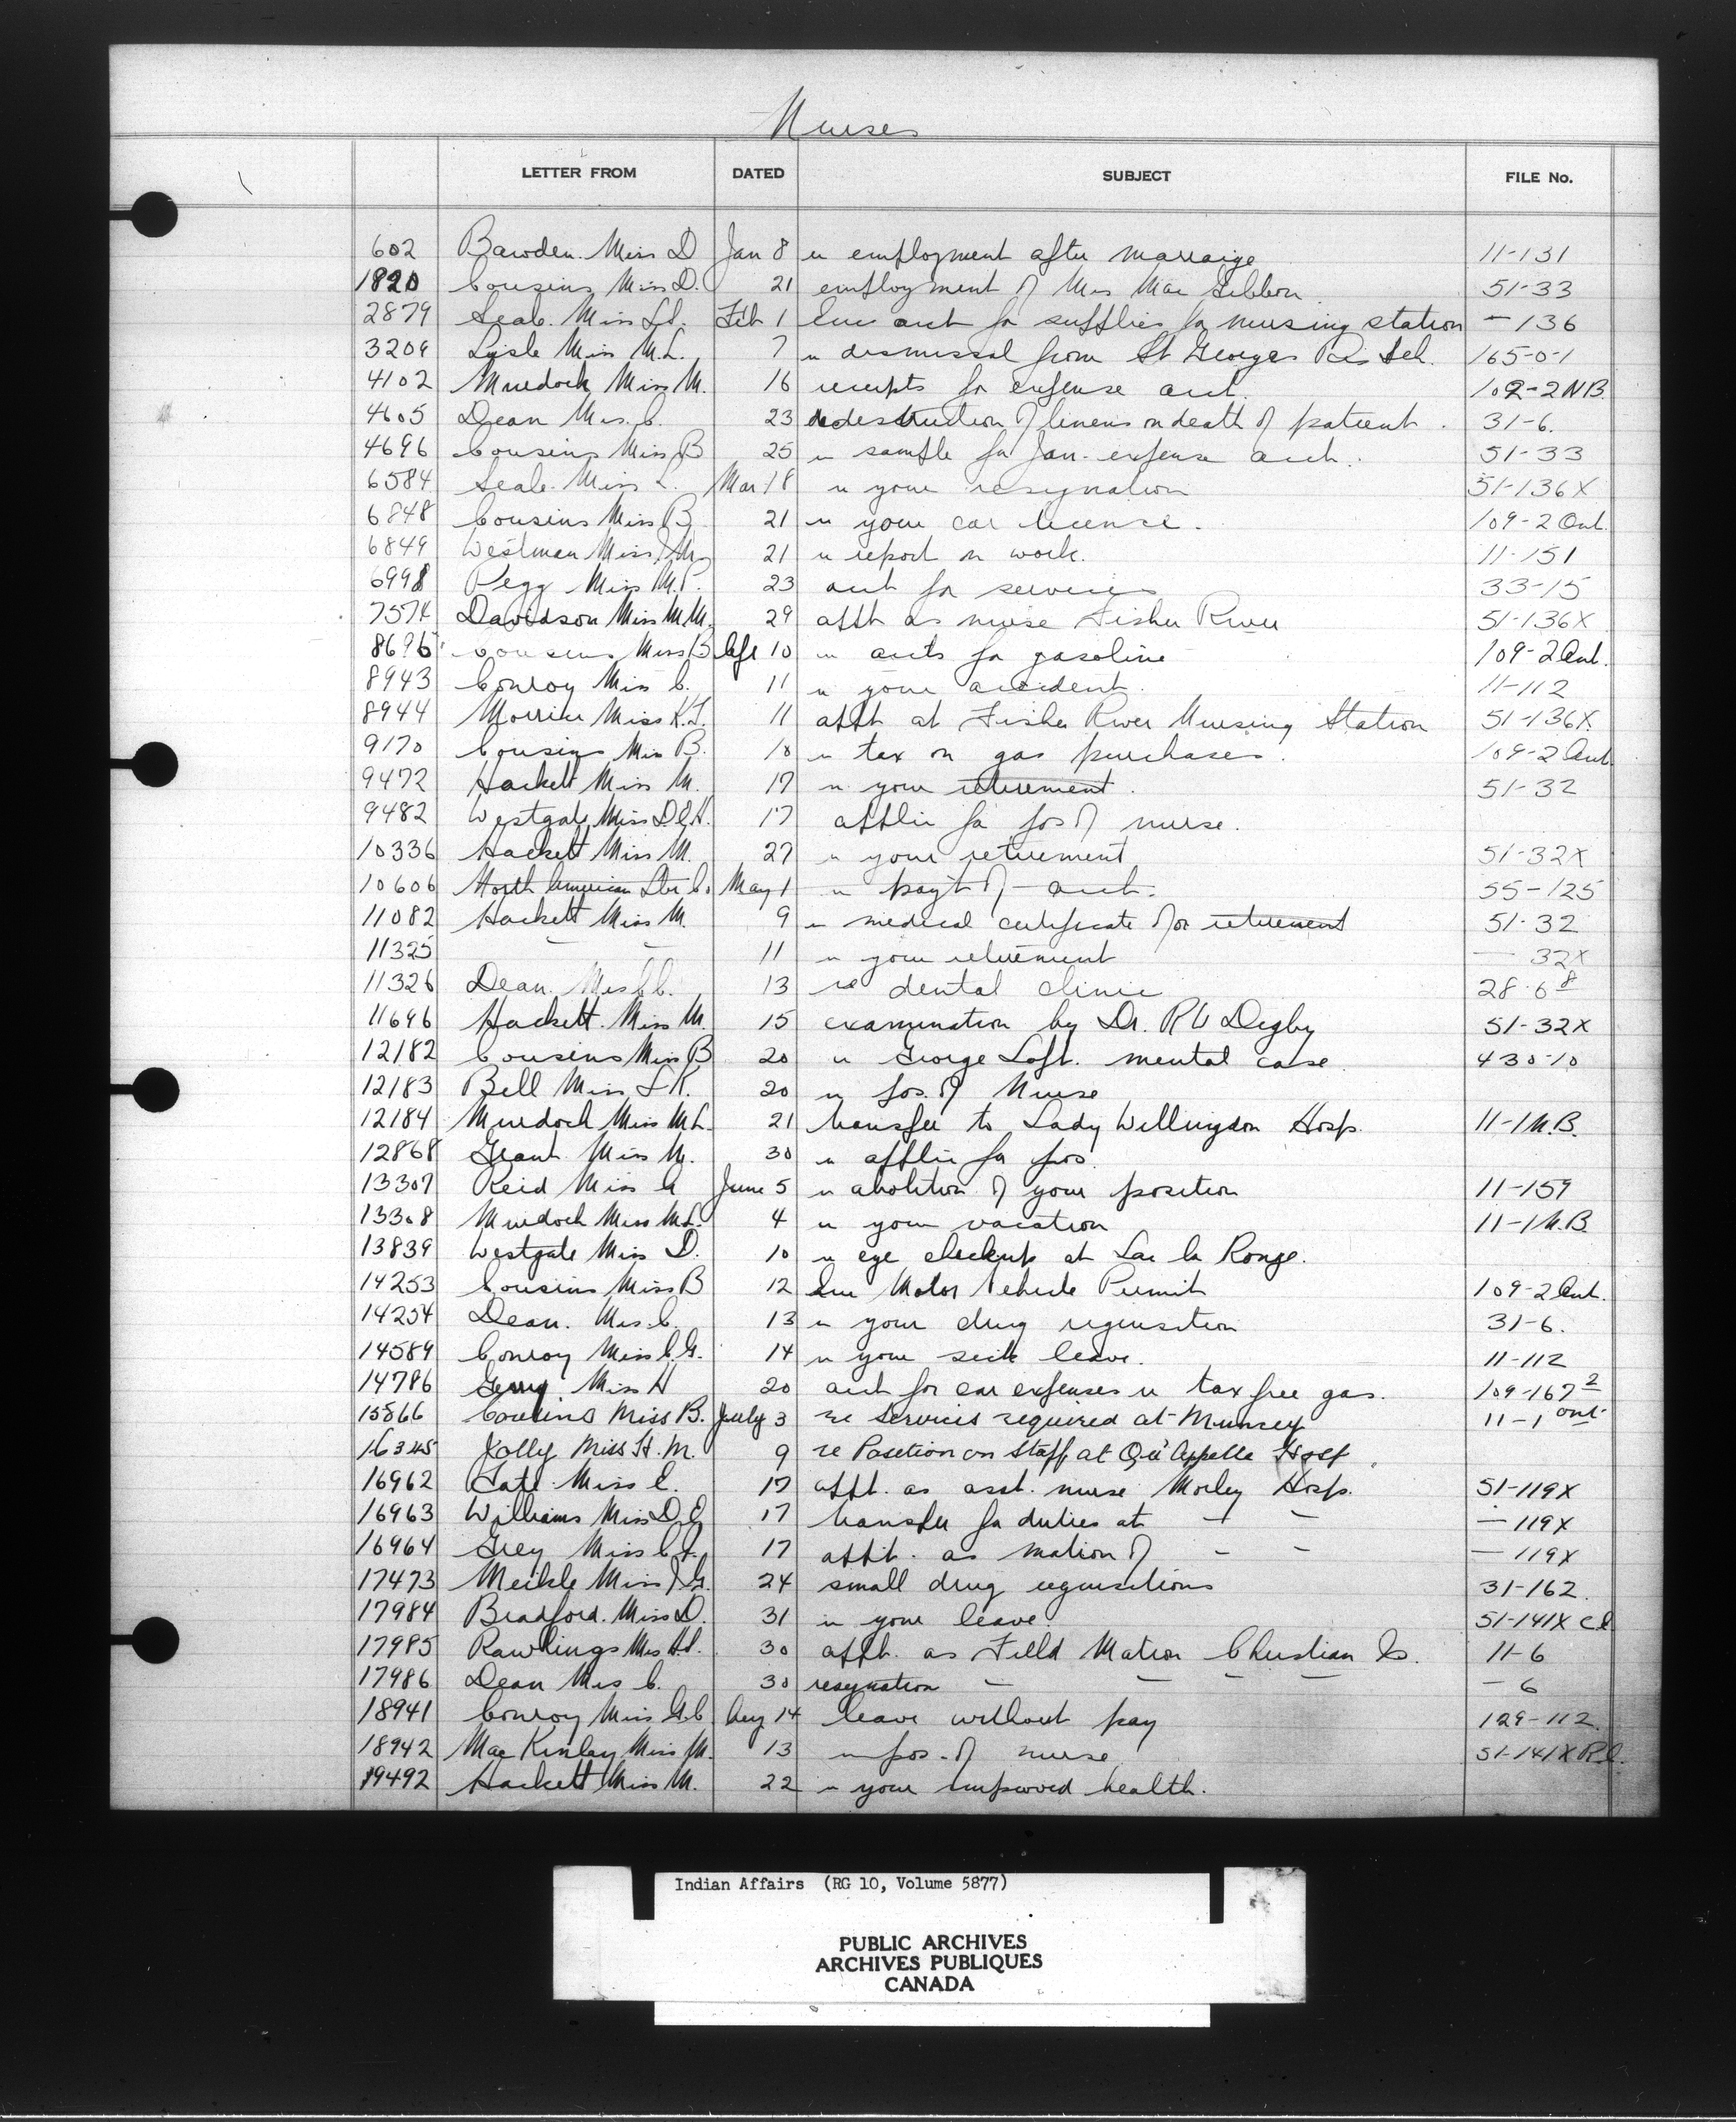 Nurses
LETTER FROM DATED SUBJECT FILE No.
602 Bawden Miss D Jan 8 re employment after marraige 11-131
1820 Cousins Miss D. 21 employment of Mrs Mac Gibbon 51-33
2879 Seale Miss L. Feb 1 Enc acct for supplies for nursing station — 136
3209 Lysle Miss M.L. 7 re dismissal from St Georges Res Sch. 165-0-1
4102 Murdock Miss M. 16 receipts for expense acct. 109-2 NB
4605 Dean Mrs. C. 23 re destruction of linens on death of patient. 31-6.
4696 Cousins Miss B 25 re sample for Jan. expense acct. 51-33
6584 Seale Miss L. Mar 18 re your resignation 51-136X
6848 Cousins Miss B 21 re your car licence. 109-2 Ont.
6849 Westman Miss 21 re report on work. 11-151
6998 Pegg Miss M.P. 23 acct for services 33-15
7574 Davidson Miss M.M. 29 appt as nurse Fisher River 51-136X
8676 Cousins Miss B Apl 10 re accts for gasoline 109-2 Ont.
8943 Conroy Miss C. 11 re your accident. 11-112
8944 Morrier Miss K.I. 11 appt at Fisher River Nursing Station 51-136X.
9170 Cousins Miss B. 10 re tax on gas purchases. 109-2 Ont
9472 Hackett Miss M. 17 re your retirement. 51-32
9482 Westgate Miss D.E.H. 17 applic for pos of nurse.
10336 Hackett Miss M. 27 re your retirement 51-32X
10606 North American Co. May 1 re pay't of acct. 55-125
11082 Hackett Miss M. 9 re medical certificate for retirement 51-32
11325 — — 11 re your retirement — 32X
11326 Dean Mrs C. 13 re dental clinic 28-6-8
11696 Hackett Miss M. 15 examination by Dr. R W Digby 51-32X
12182 Cousins Miss B 20 re George Loft. mental case 430-10
12183 Bell Miss L K. 20 re pos. of Nurse
12184 Murdoch Miss M.L. 21 transfer to Lady Willingdon Hosp. 11-1 N.B.
12868 Grant Miss M. 30 re applic for pos.
13307 Reid Miss A June 5 re abolition of your position 11-159
13308 Murdoch Miss M.L. 4 re your vacation 11-1 N.B
13839 Westgate Miss D. 10 re eye checkup at Lac la Ronge.
14253 Cousins Miss B 12 Enc Motor Vehicle Permit 109-2 Ont.
14254 Dean. Mrs. C. 13 re your drug requisition 31-6.
14589 Conroy Miss C.G. 14 re your sick leave. 11-112
14786 Miss H 20 acct for car expenses re tax free gas. 109-167 2
15866 Cousins Miss B. July 3 re Services required at Muncey 11-1 Ont
16345 Jolly Miss H. M. 9 re Position on Staff at Qu'Appelle Hosp.
16962 Tate Miss E. 17 appt. as asst. nurse Morley Hosp. 51-119X
16963 Williams Miss D.E 17 transfer for duties at — — — 119X
16964 Grey Miss C.I. 17 appt. as matron of — — — 119X
17473 Meikle Miss J.G. 24 small drug requisitions 31-162.
17984 Bradford. Miss D. 31 re your leave. 51-141X Cl
17985 Rawlings Mrs H. 30 appt. as Field Matron Christian Is. 11-6
17986 Dean Mrs C. 30 resignation — — — — — 6
18941 Conroy Miss G.C Aug 14 leave without pay 129-112
18942 MacKinley Miss M. 13 re pos. of nurse 51-141X R.C.
19492 Hackett Miss M. 22 re your improved health.
Indian Affairs (RG 10, Volume 5877)
PUBLIC ARCHIVES
ARCHIVES PUBLIQUES
CANADA